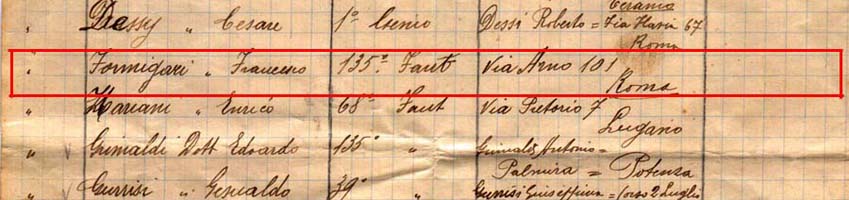 Teramo
" Dessy " Cesare 1° Genio Dessi Roberto = Via Flavia 67
Roma
" Formigari " Francesco 135° Fant Via Arno 101
Roma
" Mariani " Enrico 68° Fant Via Pretorio 7
Lugano
" Grimaldi Dott Edoardo 135° " Grimaldi Antonio =
Palmira = Potenza
" Gurrisi " Gesualdo 39° Gurrisi Giuseppina = Corso 2 Luglio